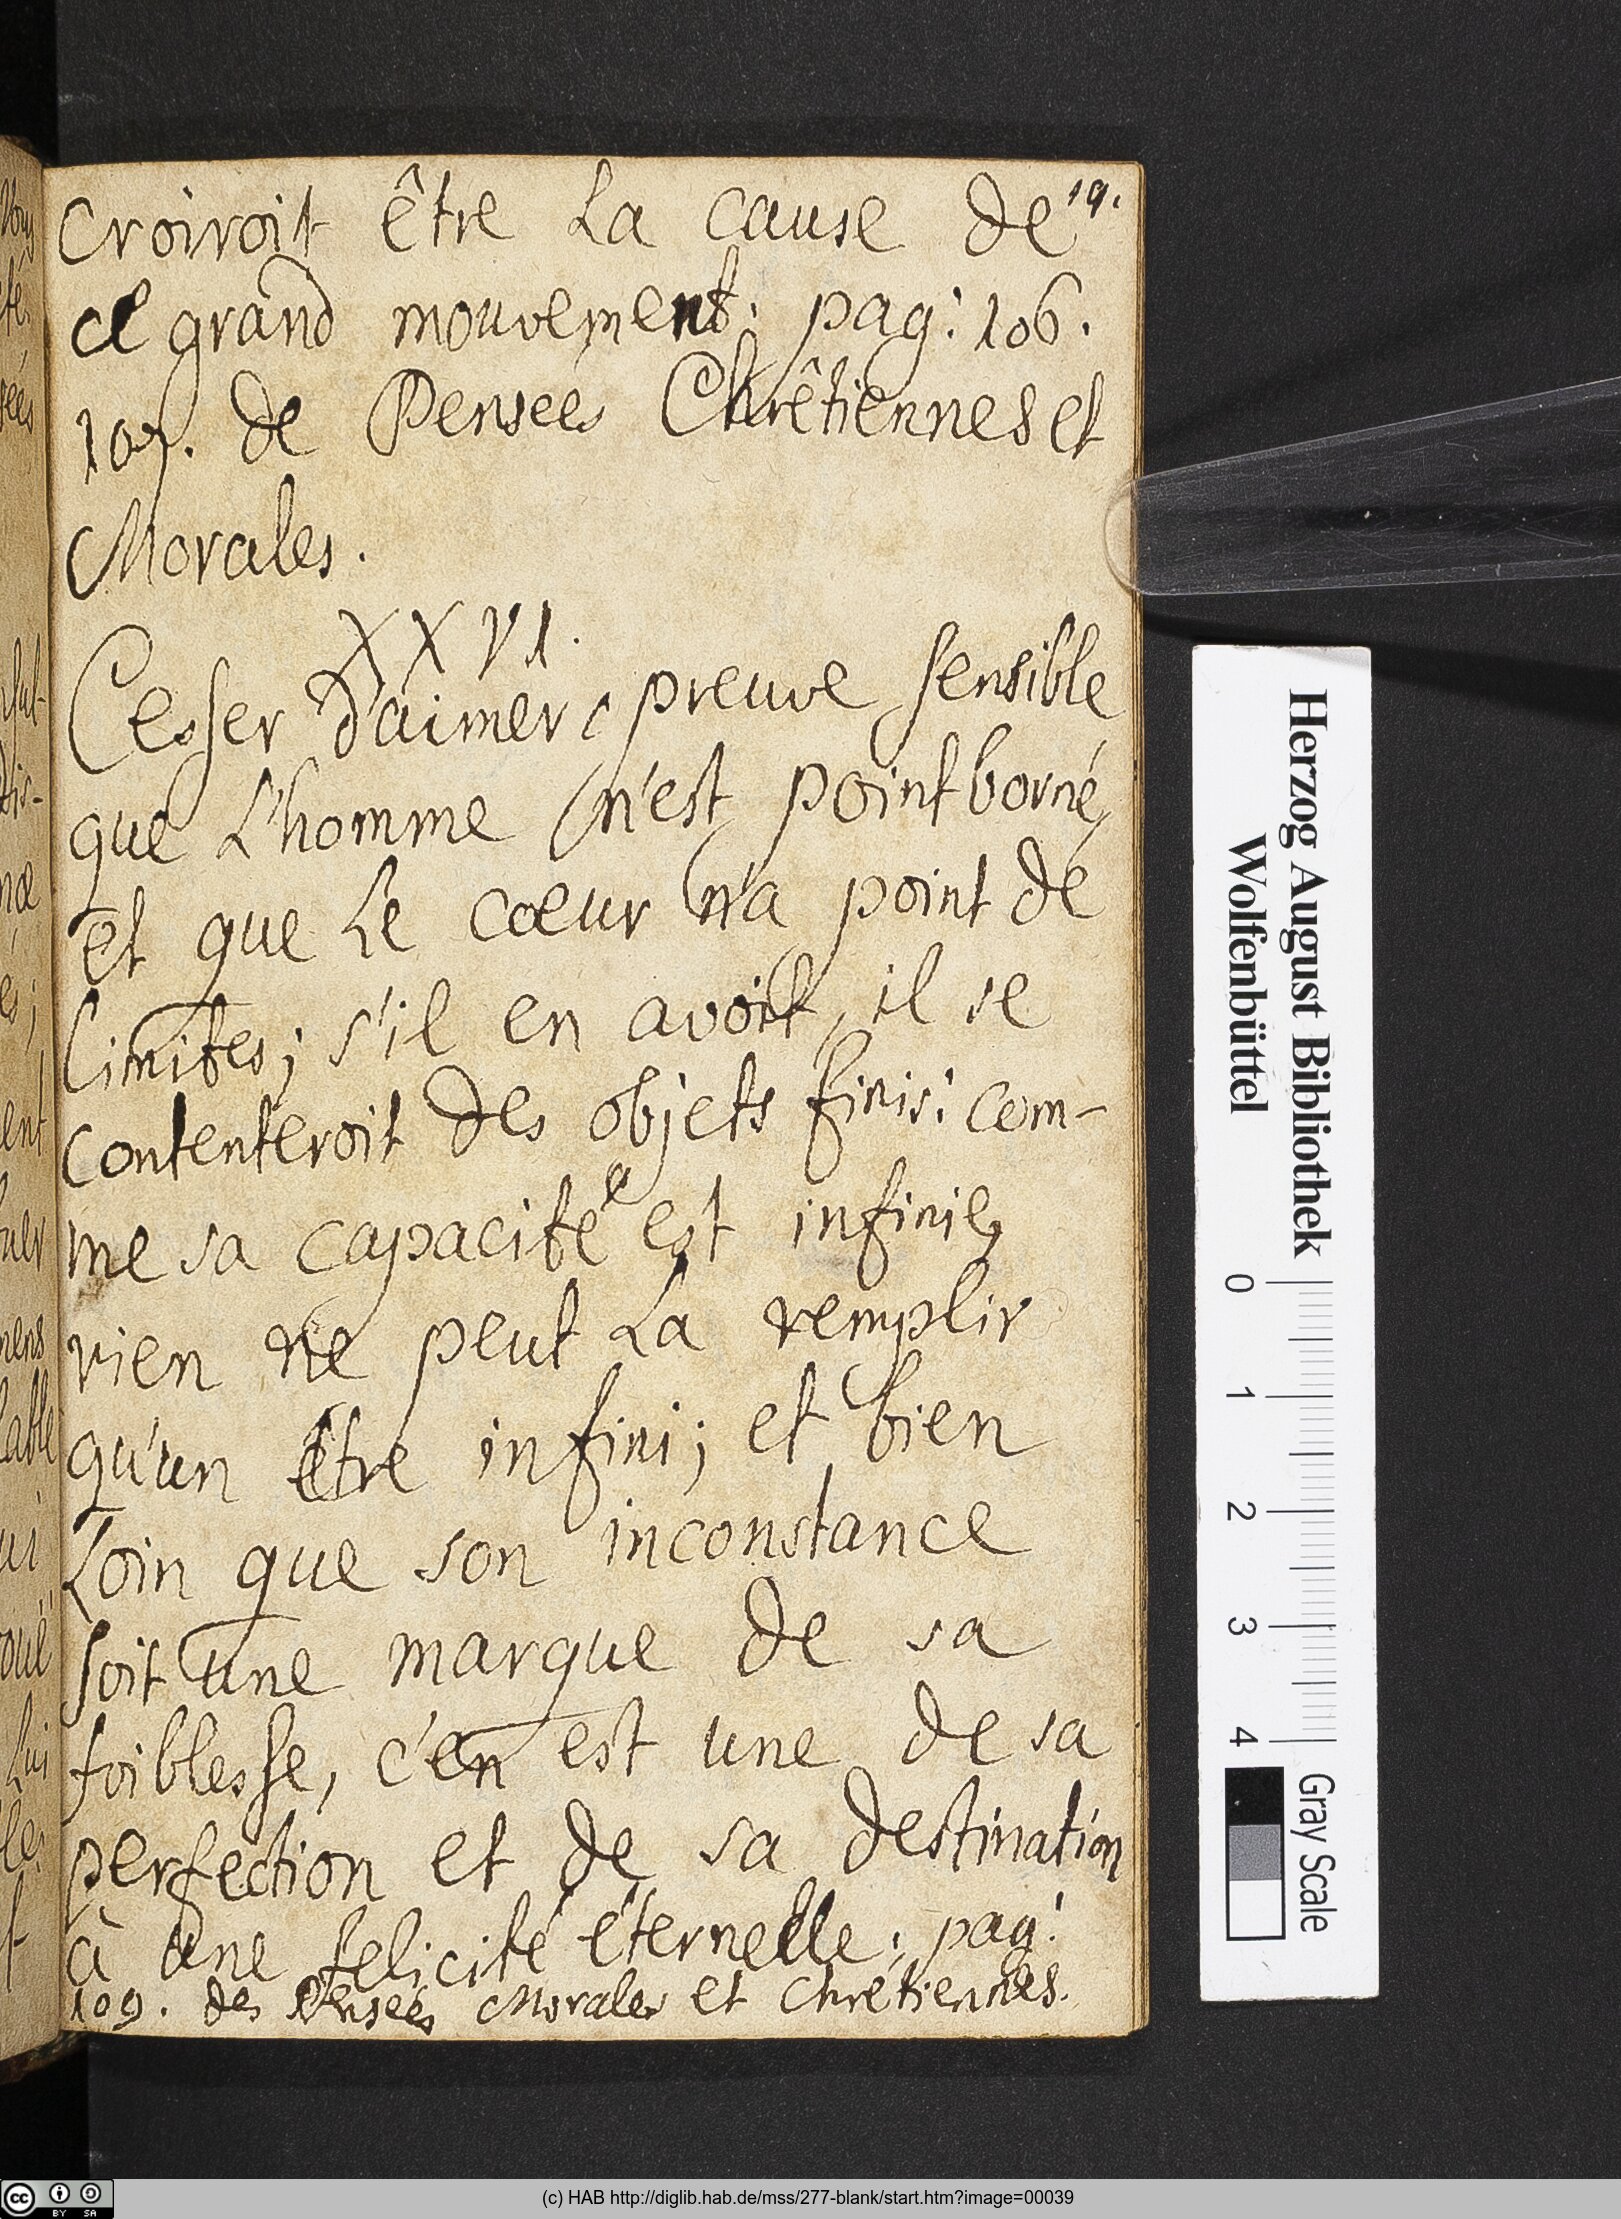 19.
Croiroit être La cause de
ce grand mouvement; pag: 106.
107. de Pensées Chrêtiennes et
Morales.
XXVI.
Cesser d'aimer, preuve sensible
que L'homme n'est point borné,
et que Le cœur n'a point de
limites; s'il en avoit, il se
contenteroit des objets finis: com-
me sa capacité est infinie,
rien ne peut La remplir
qu'un être infini; et bien
Loin que son inconstance
soit une marque de sa
foiblesse, c'en est une de sa
perfection et de sa destination
à une felicité éternelle; pag:
109. des Pensées Morales et Chretiennes.
Herzog August Bibliothek
Wolfenbüttel
0 1 2 3 4
Gray Scale
(c) HAB http://diglib.hab.de/mss/277-blank/start.htm?image=00039
cc BY SA